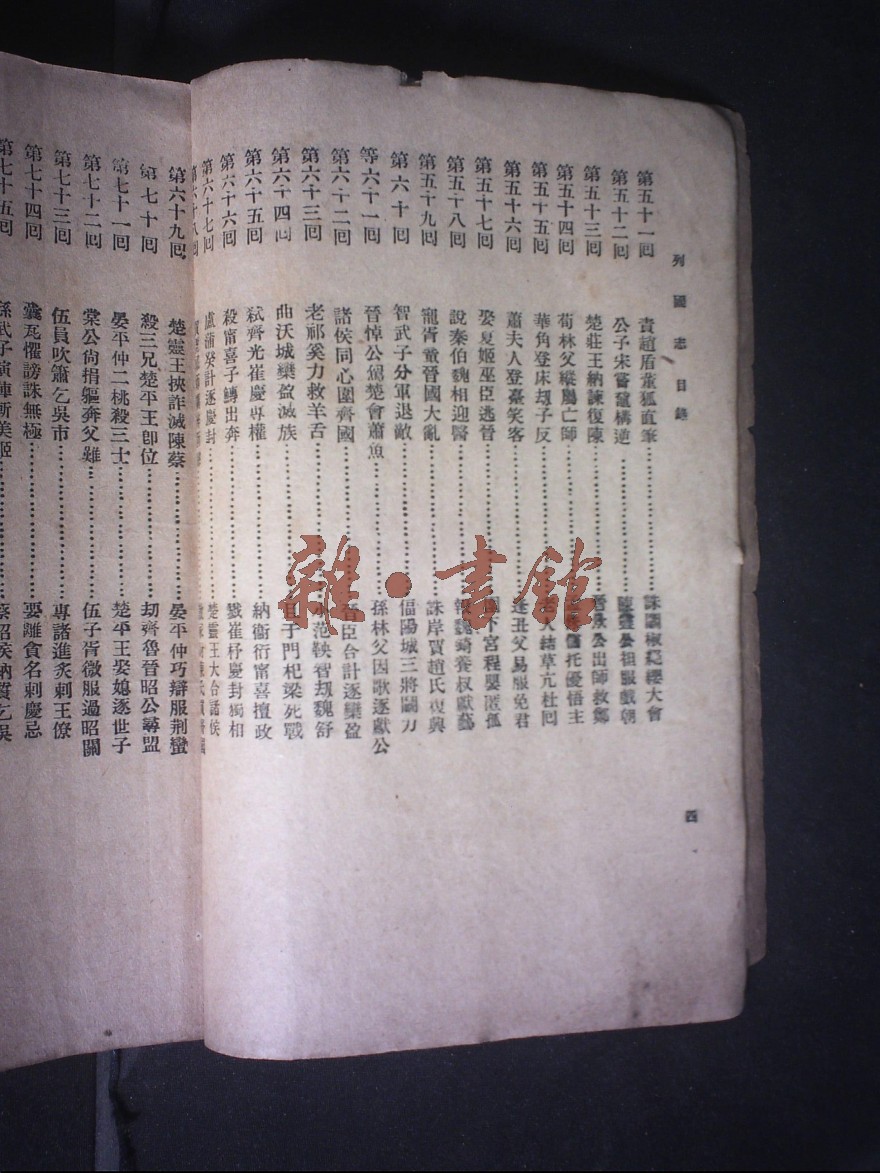 列國志目錄
第五十一回 責趙盾董狐直筆……誅鬭椒絕纓大會
第五十二回 公子宋嘗黿構逆……陳靈公袒服戲朝
第五十三回 楚莊王納諫復陳……晉景公出師救鄭
第五十四回 荀林父縱屬亡師……優托優悟主
第五十五回 華角登床刼子反……結草亢杜回
第五十六回 蕭夫人登臺笑客……逢丑父易服免君
第五十七回 娶夏姬巫臣逃晉……圍下宮程嬰匿孤
第五十八回 說秦伯魏相迎醫……報魏錡養叔獻藝
第五十九回 寵胥童晉國大亂……誅岸賈趙氏復興
第六十回 智武子分軍退敵……偪陽城三將鬭力
等六十一回 晉悼公駕楚會蕭魚……孫林父因歌逐獻公
第六十二回 諸侯同心圍齊國……晉臣合計逐欒盈
第六十三回 老祁奚力救羊舌……小范鞅智刼魏舒
第六十四回 曲沃城欒盈滅族……且于門杞梁死戰
第六十五回 弒齊光崔慶專權……納衞衎甯喜擅政
第六十六回 殺甯喜子鱄出奔……戮崔杼慶封獨相
第六十七回 盧蒲癸計逐慶封……楚靈王大合諸侯
第六十八回
第六十九回 楚靈王挾詐滅陳蔡……晏平仲巧辯服荆蠻
第七十回 殺三兄楚平王卽位……刼齊魯晉昭公尋盟
第七十一回 晏平仲二桃殺三士……楚平王娶媳逐世子
第七十二回 棠公尙捐軀奔父難……伍子胥微服過昭關
第七十三回 伍員吹簫乞吳市……專諸進炙刺王僚
第七十四回 囊瓦懼謗誅無極……要離貪名刺慶忌
第七十五回 孫武子演陣斬美姬……蔡昭侯納質乞吳
四
雜·書館